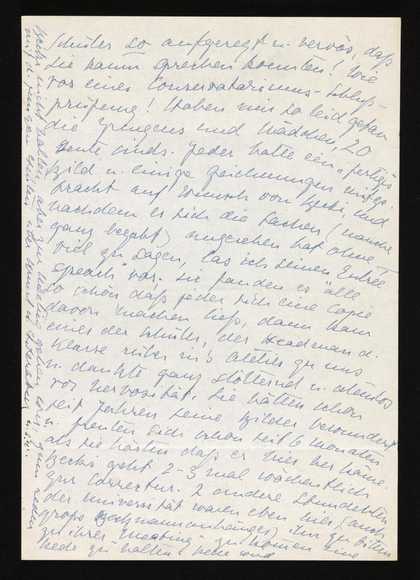 Schüler so aufgeregt u. nervös, daß
sie kaum sprechen konnten! Wie
vor einer Conservatoriums-Schluß-
prüfung! Haben mir so leid getan
die Jungens und Mädchen, 20
Leute sinds. Jeder hatte ein fertiges
Bild u. einige Zeichnungen mitge-
bracht auf Wunsch von und
nachdem er sich die Sachen (manche
ganz begabt) angesehen hat ohne
viel zu sagen, las ich seinen
spruch vor. Sie fanden es alle
so schön daß jeder sich eine Copie
davon machen ließ, dann kam
einer der Schüler, der Headman d.
Klasse rüber ins Atelier zu uns
u. dankte ganz stotternd u. atemlos
vor Nervosität. Sie hätten schon
seit Jahren seine Bilder bewundert
u. freuten sich schon seit 6 Monaten
als sie hörten daß er hier her käme.
geht 2-3 mal wöchentlich
zur Correctur. 2 andere Studenten
der Universität waren eben hier (auch
große ) ihn zu bitten
zu ihrem meeting zu kommen eine
Rede zu halten,
nicht halten, aber zum Meeting gehen
mit d. jungen